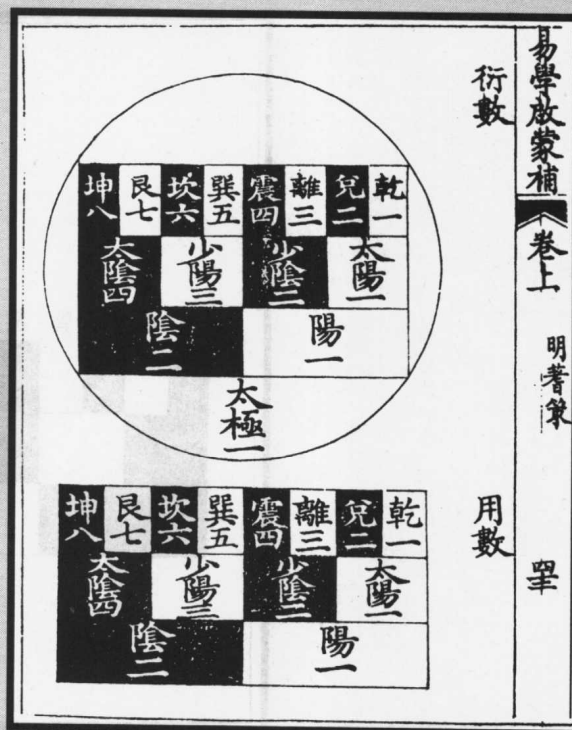 易學啟蒙補
卷上
明蓍策
衍數
乾一 兌二 離三 震四 巽五 坎六 艮七 坤八
太陽一 少陰二 少陽三 太陰四
陽一 陰二
太極一
用數
乾一 兌二 離三 震四 巽五 坎六 艮七 坤八
太陽一 少陰二 少陽三 太陰四
陽一 陰二